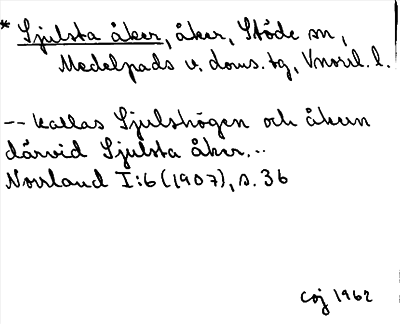 * Sjulsta åker, åker, Stöde sn,
Medelpads v. doms. tg, Vnorrl. l.
-- kallas Sjulshögen och åkern
därvid Sjulsta åker...
Norrland I:6 (1907), s. 36
Coj 1962